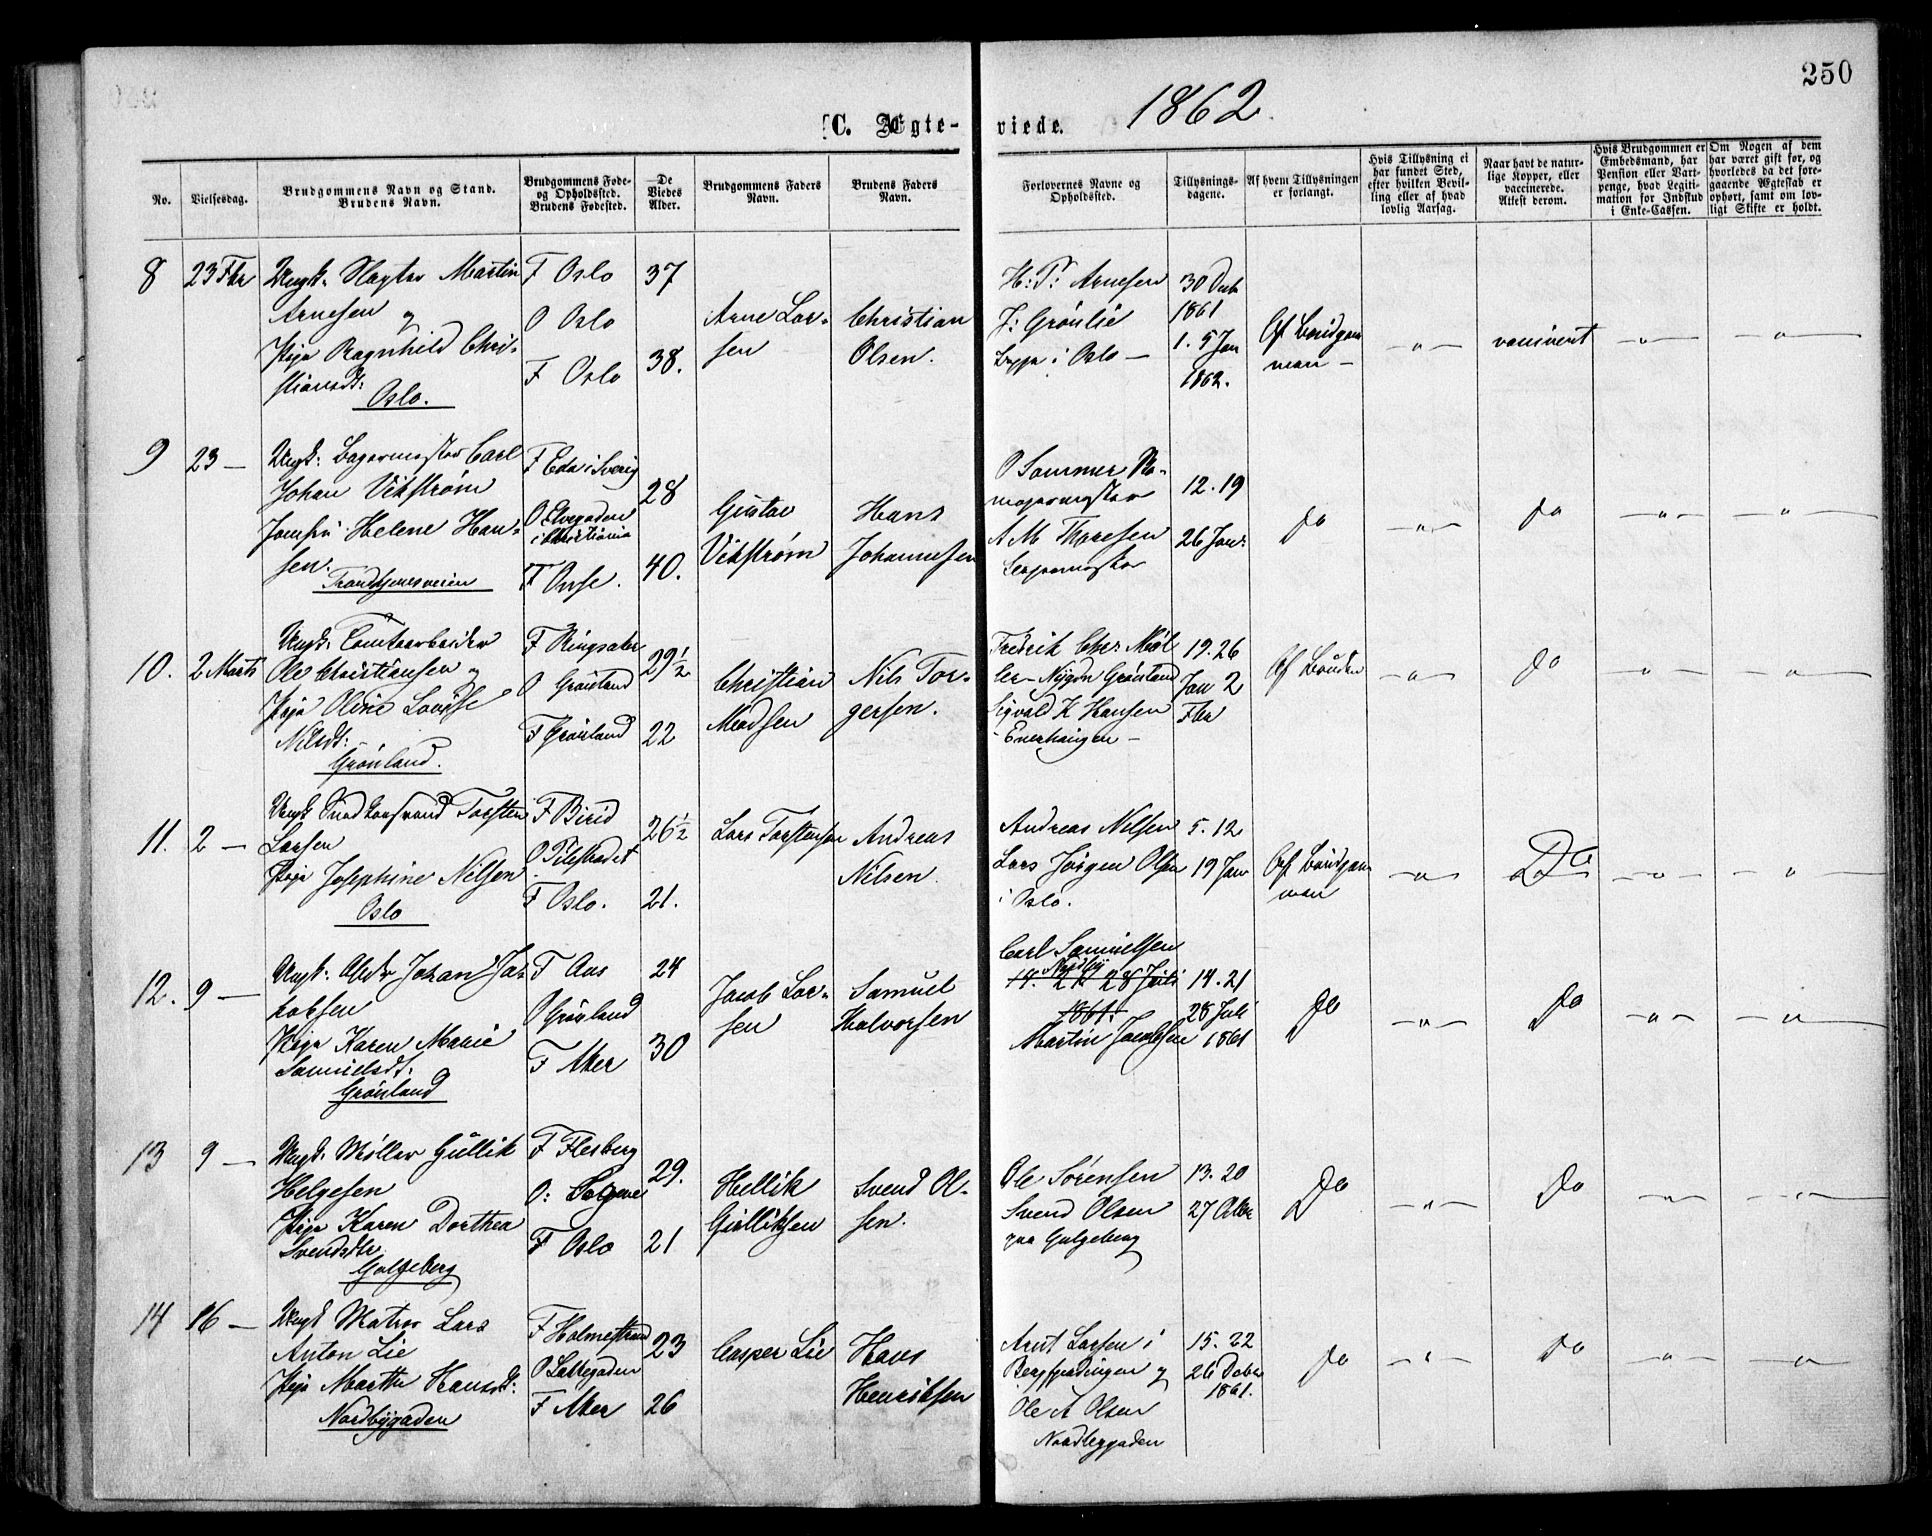 250
1862.
C. Ægte-
viede.
No.
Vielsesdag.
Brudgommens Navn og Stand.
Brudens Navn.
Brudgommens Føde-
og Opholdssted.
Brudens Fødested.
De
Viedes
Alder.
Brudgommens Faders
Navn.
Brudens Faders
Navn.
Forlovernes Navne og
Opholdssted.
Tillysnings-
dagene.
Af hvem Tillysningen
er forlangt.
Hvis Tillysning ei
har fundet Sted,
efter hvilken Bevil-
ling eller af hvad
lovlig Aarsag.
Naar havt de natur-
lige Kopper, eller
vaccinerede.
Attest derom.
Hvis Brudgommen er
Embedsmand, har
Pension eller Vart-
penge, hvad Legiti-
mation for Indskud
i Enke-Cassen.
Om Nogen af dem
har været gift før, og
hvorledes da det fore-
gaaende Ægteskab er
ophørt, samt om lov-
ligt Skifte er holdt.
8
23 Fbr
Ungk: Slagter Martin
Arnesen og
Pige Ragnhild Chri-
stiansdt:
Oslo.
F Oslo
O Oslo
F Oslo
37
38.
Arne Lar-
sen
Christian
Olsen.
H: P: Arnesen
J: Grønlie
Begge i Oslo —
30 Decb
1861
1. 5 Jan
1862.
Af Brudgom
man —
— „ —
vaccinert
— „ —
— „ —
9
23 —
Ungk: Bagermester Carl
Johan Vikstrøm
Jomfru Helene Han-
sen.
Trondhjemsveien
F Eda i Sverig
O Elvegaden
i Christiania
F Onsø.
28
40.
Gustav
Vikstrøm
Hans
Johannesen
O Sommer
A M Thoresen
12. 19
26 Jan:
Do
— „ —
Do
— „ —
— „ —
10.
2 Marts
Ungk: Tomtearbeider
Ole Christiansen og
Pige Oline Lovise
Nilsdt:
Grønland.
F Ringsaker
O Grønland
F Grønland
29½
22
Christian
Madsen
Nils Tor-
gersen.
Fredrik Chr Møl
ler — Grønland
Sigvald K Hansen
Enerhaugen —
19. 26
Jan 2
Fbr
Af Bruden
— „ —
Do
— „ —
— „ —
11.
2 —
Ungk Torsten
Larsen
Pige Josephine Nilsen
Oslo
F Birid
O Pilestrædet
F Oslo.
26½
21.
Lars Torstensen
Andreas
Nilsen.
Andreas Nilsen
Lars Jørgen Olsen
i Oslo.
5. 12
19 Jan
Af Brudgom
man
— „ —
Do
— „ —
— „ —
12.
9 —
Ungk: Johan Ja-
kobsen
Pige Karen Marie
Samuelsdt:
Grønland
F Aas
O Grønland
F Aker
24
30
Jacob Lar-
sen
Samuel
Halvorsen
Carl Samuelsen
Nordby
14. 21 28 Juli
1861.
Martin Jacobsen
14. 21
28 Juli
1861
Do
— „ —
Do
— „ —
— „ —
13
9 —
Ungk. Møller Gullik
Helgesen
Pige Karen Dorthea
Svendsdtr
Galgeberg
F Flesberg
O:
F Oslo
29.
21
Hellik
Gulliksen
Svend Ol-
sen.
Ole Sørensen
Svend Olsen
paa Galgeberg
13. 20
27
Do
— „ —
Do
— „ —
— „ —
14
16 —
Ungk Matros Lars
Anton Lie
Pige Marthe Hansdt:
Nordbygaden
F Holmestrand
O Lakkegaden
F Aker
23
26
Casper Lie
Hans
Henriksen
Arnt Larsen i
og
Ole A Olsen
Nordbygaden
15. 22
26 Decbr
1861.
Do
— „ —
Do
— „ —
— „ —